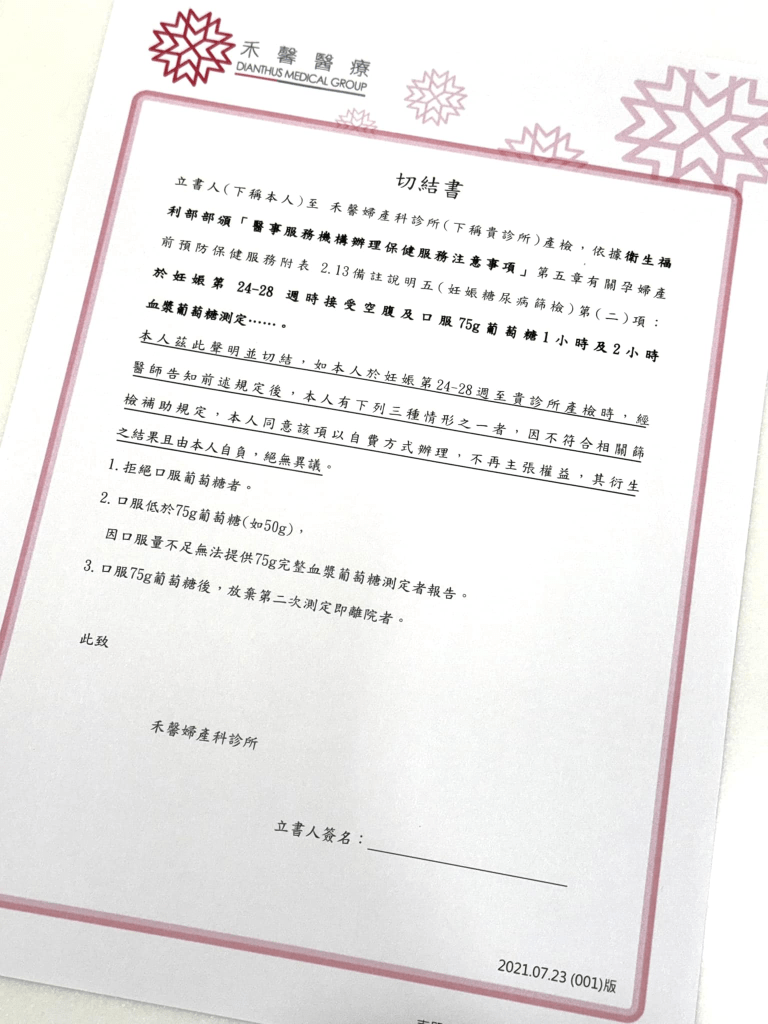 禾馨醫療
DIANTHUS MEDICAL GROUP
切結書
立書人(下稱本人)至 禾馨婦產科診所(下稱貴診所)產檢，依據衛生福
利部部頒「醫事服務機構辦理保健服務注意事項」第五章有關孕婦產
前預防保健服務附表 2.13備註說明五(妊娠糖尿病篩檢)第(二)項：
於妊娠第 24-28 週時接受空腹及口服75g葡萄糖1小時及2小時
血漿葡萄糖測定……。
本人茲此聲明並切結，如本人於妊娠第24-28週至貴診所產檢時，經
醫師告知前述規定後，本人有下列三種情形之一者，因不符合相關篩
檢補助規定，本人同意該項以自費方式辦理，不再主張權益，其衍生
之結果且由本人自負，絕無異議。
1.拒絕口服葡萄糖者。
2.口服低於75g葡萄糖(如50g)，
因口服量不足無法提供75g完整血漿葡萄糖測定者報告。
3.口服75g葡萄糖後，放棄第二次測定即離院者。
此致
禾馨婦產科診所
立書人簽名：
2021.07.23 (001)版